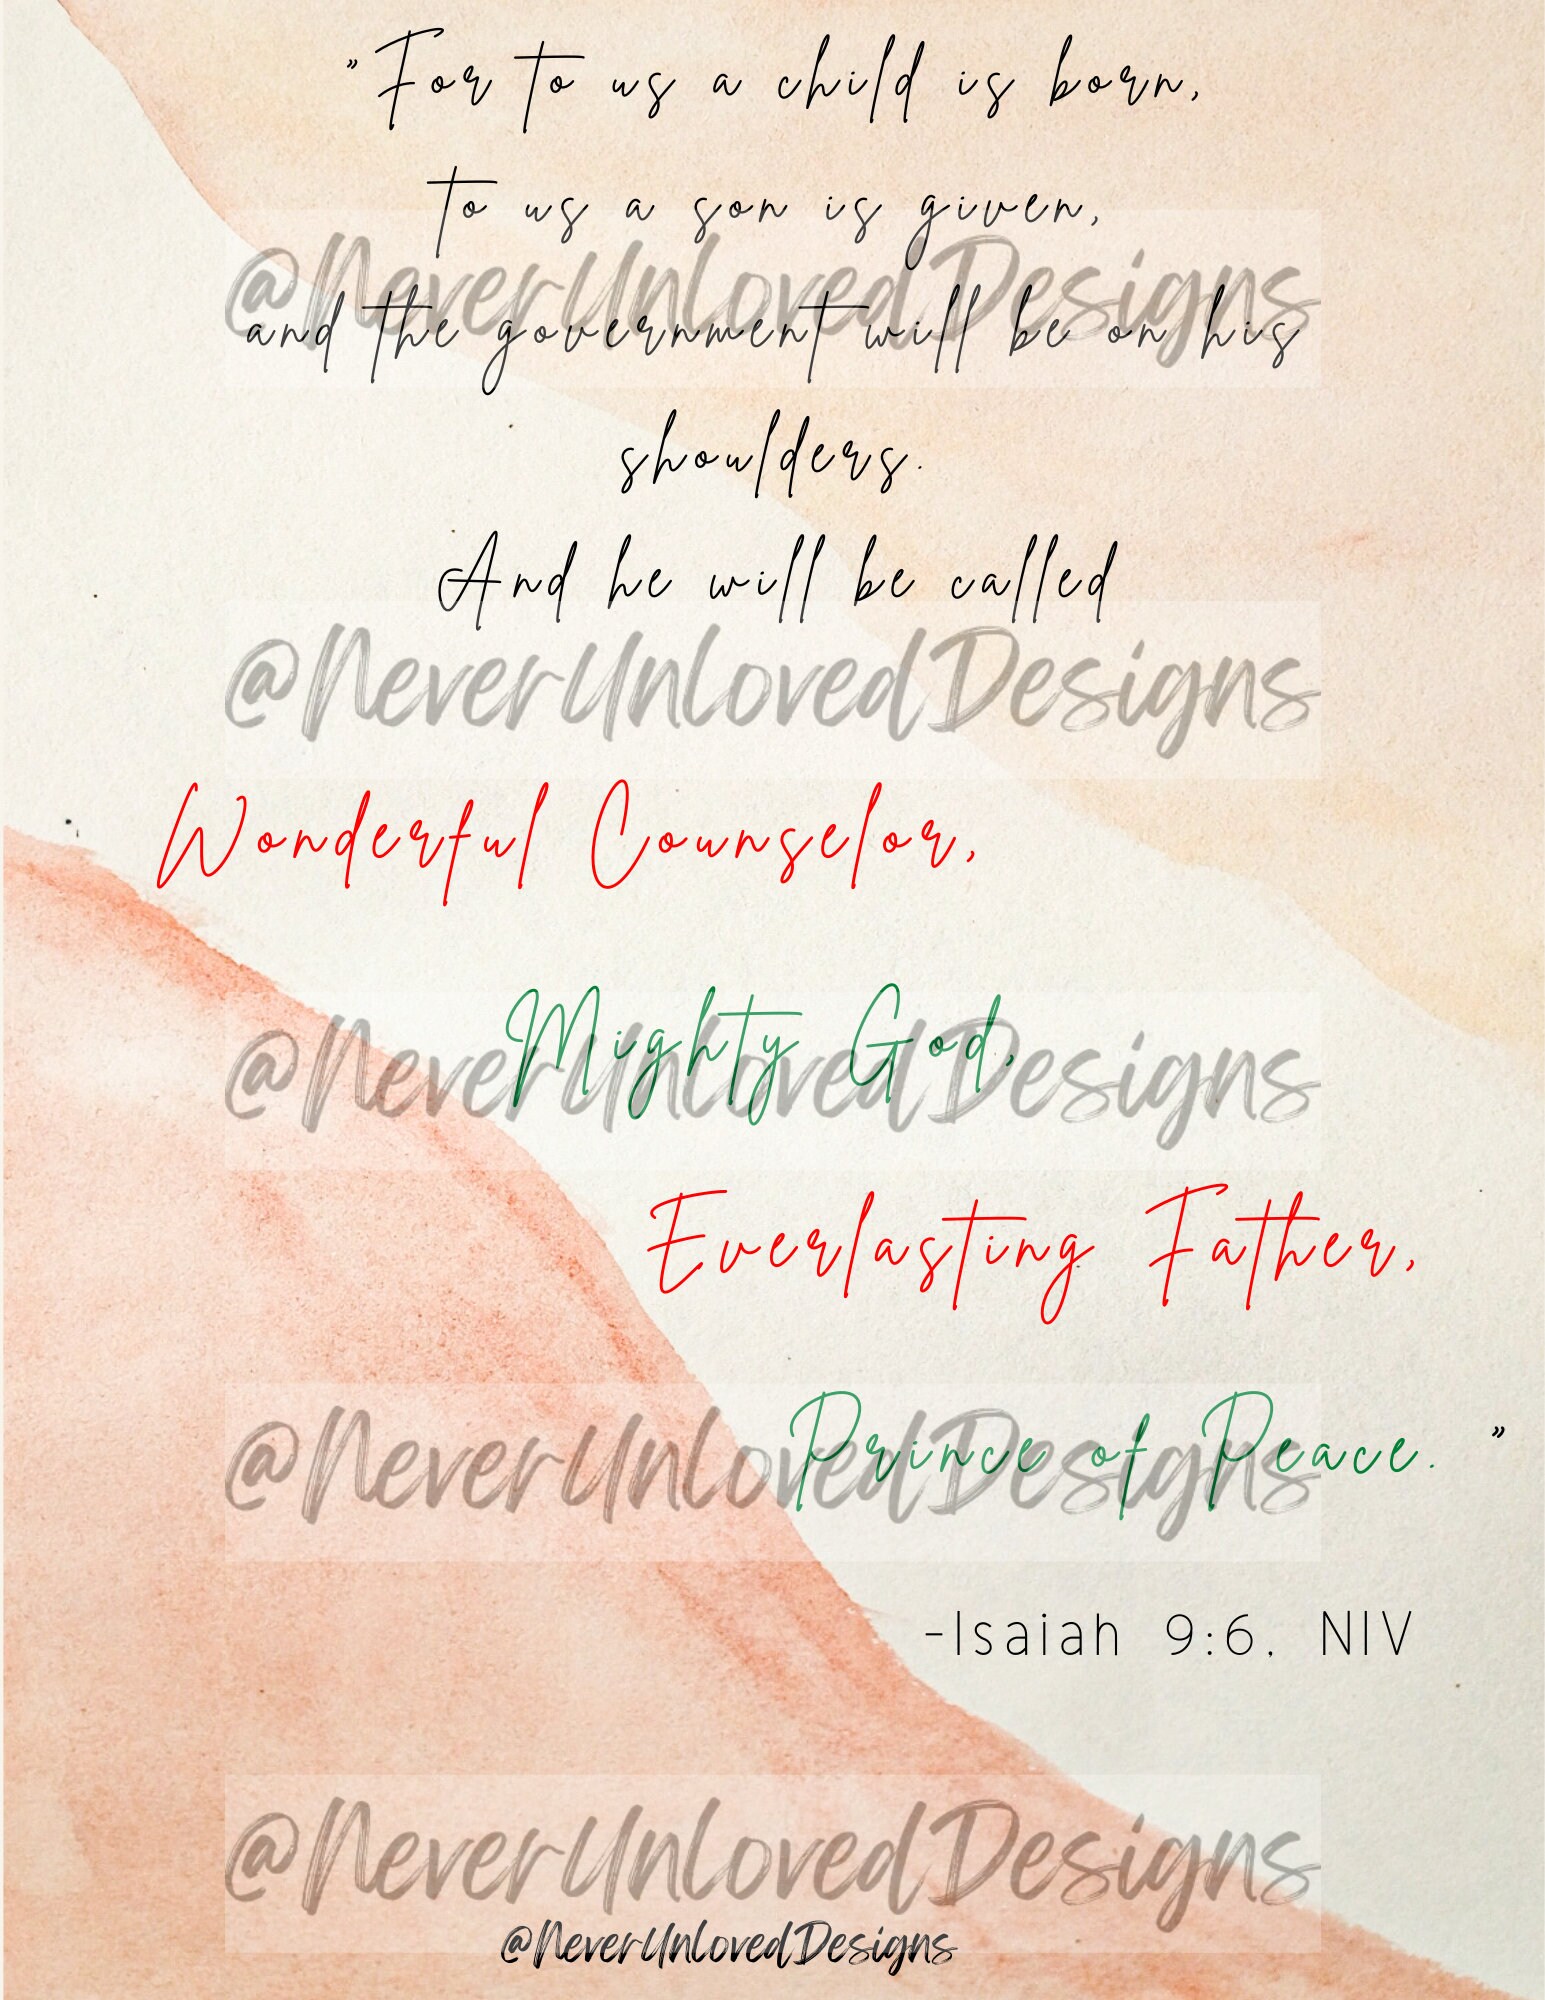 "For to us a child is born,
to us a son is given,
@NeverUnlovedDesigns
and the government will be on his
shoulders.
And he will be called
@NeverUnlovedDesigns
Wonderful Counselor,
Mighty God,
@NeverUnlovedDesigns
Everlasting Father,
Prince of Peace. "
@NeverUnlovedDesigns
-Isaiah 9:6, NIV
@NeverUnlovedDesigns
@NeverUnlovedDesigns